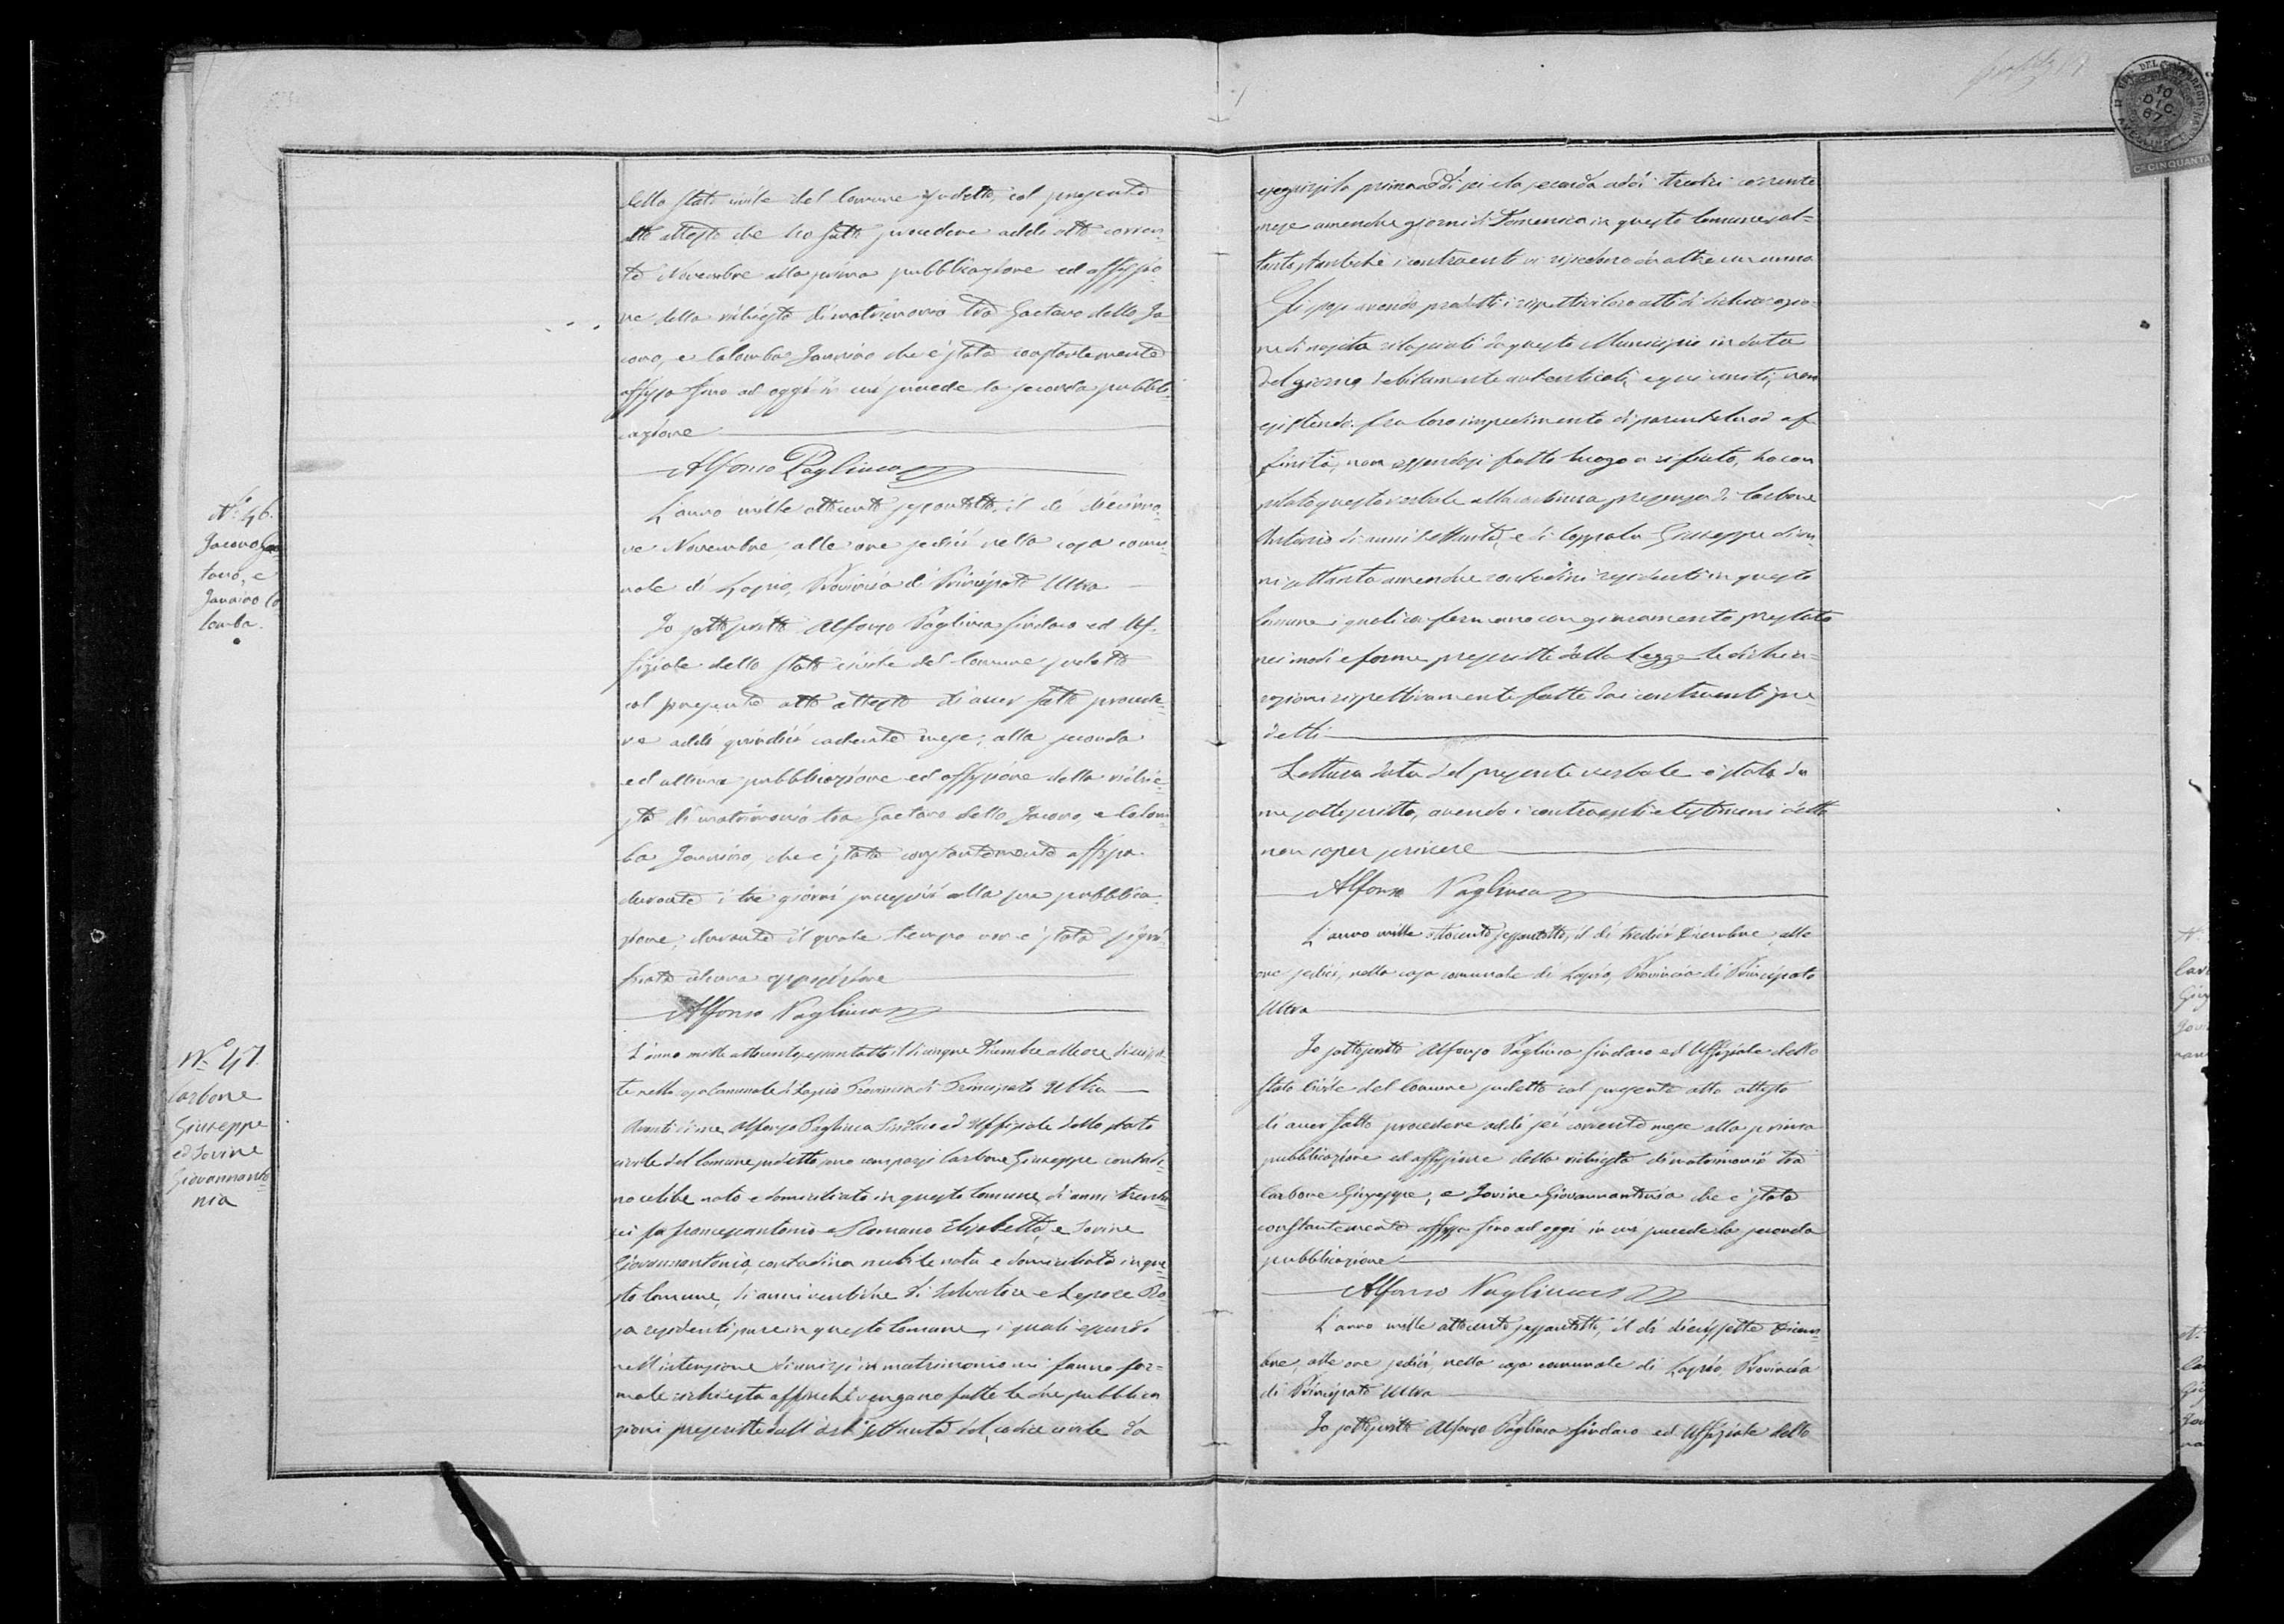 dello stato civile del Comune sudetto, col presente
atto attesto che ho fatto procedere addì otto corren-
te Novembre alla prima pubblicazione ed affissio-
ne della richiesta di matrimonio tra Gaetano dello Ja
cono, e Colomba Jannino che è stata constantemente
affissa fino ad oggi in cui procede la seconda pubbli-
cazione
Alfonso Pagliuca
N.º 46.
Jacono Gae
tano, e
Jannino Co
lomba.
L'anno mille ottocento sessantotto, il dì dicinno-
ve Novembre, alle ore sedici nella casa comu-
nale di Lapio, Provincia di Principato Ultra
Io sottoscritto Alfonso Pagliuca Sindaco ed Uf-
fiziale dello stato civile del Comune sudetto
col presente atto attesto di aver fatto procede-
re addì quindici cadente mese, alla seconda
ed ultima pubblicazione ed affissione della richie-
sta di matrimonio tra Gaetano dello Jacono, e Colom-
ba Jannino, che è stata constantemente affissa
durante i tre giorni successivi alla sua pubblica-
zione, durante il quale tempo non è stata signi-
ficata alcuna opposizione
Alfonso Pagliuca
N.º 47.
Carbone
Giuseppe
ed Iovine
Giovannanto-
nia
L'anno mille ottocento sessantotto il dì cinque Dicembre alle ore dicisset-
te nella casa Comunale di Lapio Provincia di Principato Ultra
Avanti di me Alfonso Pagliuca Sindaco ed Uffiziale dello stato
civile del Comune sudetto sono comparsi Carbone Giuseppe contadi-
no celibe nato e domiciliato in questo Comune, di anni trenta
sei fu Francescantonio e Romano Elisabetta, e Iovine
Giovannantonia, contadina nubile nata e domiciliata in que-
sto Comune, di anni ventidue di Salvatore e Lepore Ro-
sa residenti pure in questo Comune, i quali essendo
nell'intenzione di unirsi in matrimonio mi fanno for-
male richiesta affinchè vengano fatte le due pubblica
zioni prescritte dall'art.º settanta del codice civile da
eseguirsi la prima addì sei e la seconda addì tredici corrente
mese amendue giorni di Domenica in questo Comune sol-
tanto stantechè i contraenti vi risiedono da oltre un anno
Gli sposi avendo prodotti i rispettivi loro atti di dichiarazio-
ne di nascita rilasciati da questo Municipio in data
del giorno, debitamente autenticati, e qui uniti, non
esistendo fra loro impedimento di parentela od af
finità, non essendosi fatto luogo a rifiuto, ho com
pilato questo verbale alla continua presenza di Carbone
Antonio di anni settanta, e di Coppola Giuseppe di an-
ni ottanta amendue contadini residenti in questo
Comune i quali confermano con giuramento prestato
nei modi e forme prescritte dalla Legge le dichia-
razioni rispettivamente fatte dai contraenti su-
detti
Lettura data del presente verbale è stato da
me sottoscritto, avendo i contraenti e testimoni detto
non saper scrivere
Alfonso Pagliuca
L'anno mille ottocento sessantotto, il dì tredici Dicembre, alle
ore sedici, nella casa comunale di Lapio, Provincia di Principato
Ultra
Io sottoscritto Alfonso Pagliuca Sindaco ed Uffiziale dello
stato Civile del Comune sudetto col presente atto attesto
di aver fatto procedere addì sei corrente mese alla prima
pubblicazione ed affissione della richiesta di matrimonio tra
Carbone Giuseppe, e Iovine Giovannantonia che è stata
constantemente affissa fino ad oggi in cui procede la seconda
pubblicazione
Alfonso Pagliuca
L'anno mille ottocento sessantotto, il dì dicissette Dicem-
bre, alle ore sedici, nella casa comunale di Lapio, Provincia
di Principato Ultra
Io sottoscritto Alfonso Pagliuca Sindaco ed Uffiziale dello
10
DIC
67
CINQUANTA